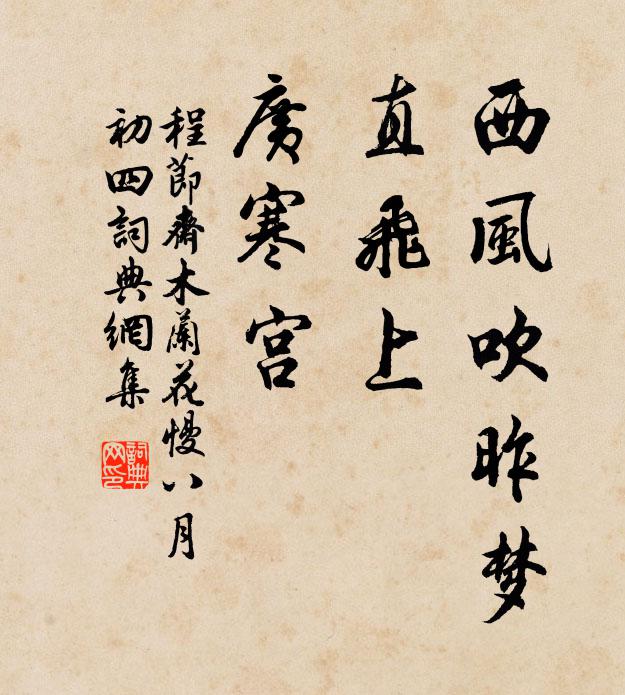 西風吹昨梦
直飛上
廣寒宫
程節齋木蘭花慢八月
初四詞典網集
詞典网印